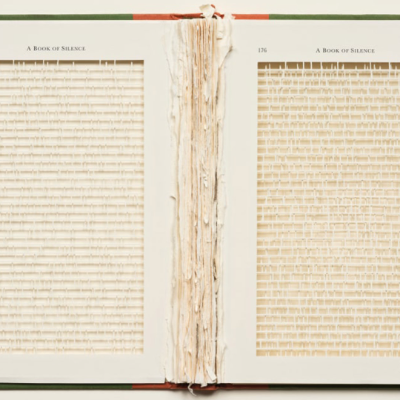 A BOOK OF SILENCE
176 A BOOK OF SILENCE